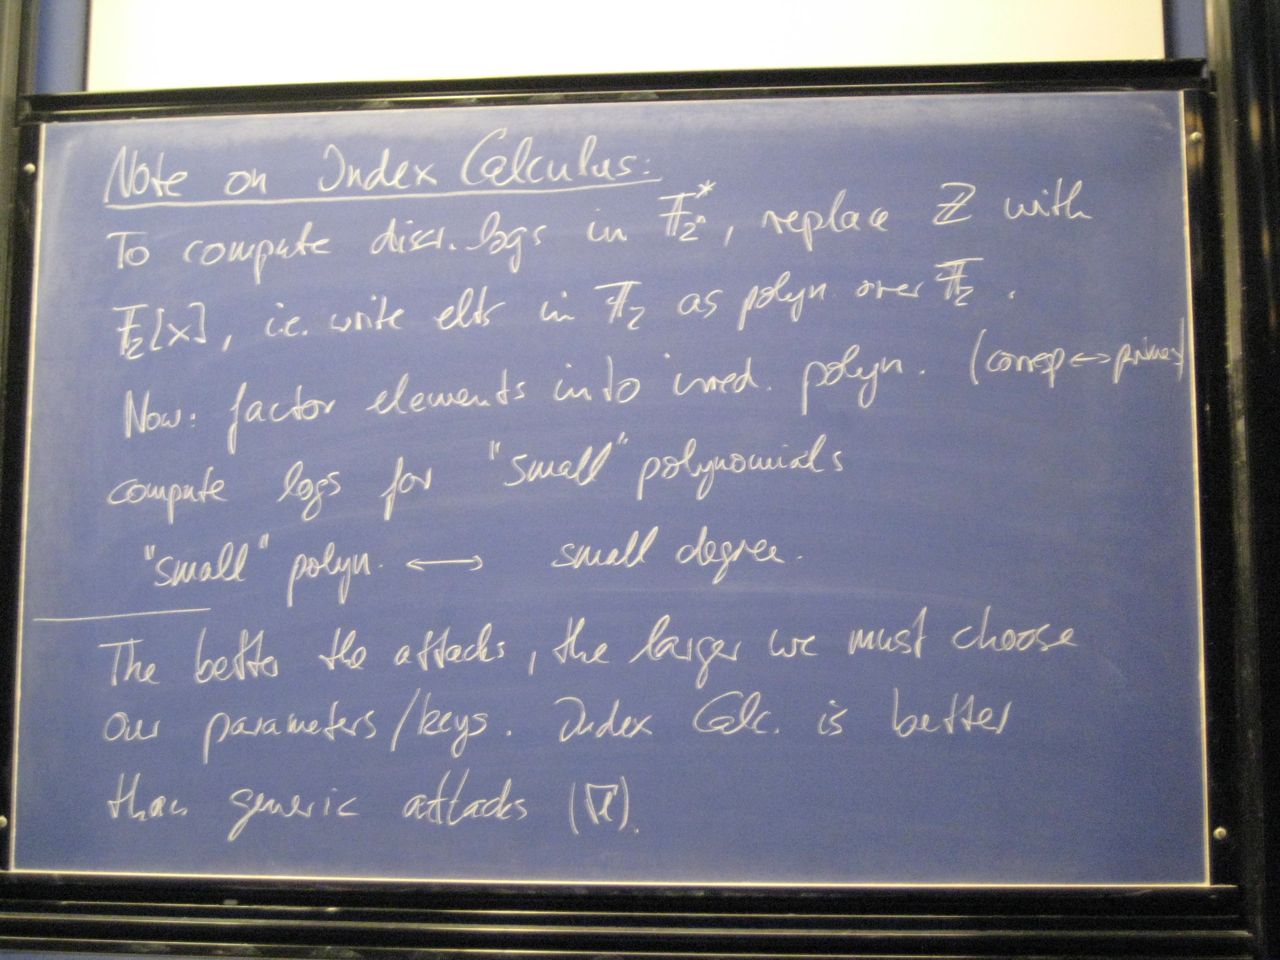 Note on Index Calculus:
To compute discr. logs in 𝔽₂ⁿ*, replace ℤ with
𝔽₂[x], i.e. write elts in 𝔽₂ as polyn. over 𝔽₂.
Now: factor elements into irred. polyn. (corresp ↔ primes)
compute logs for "small" polynomials
"small" polyn. ↔ small degree.
The better the attacks, the larger we must choose
our parameters/keys. Index Calc. is better
than generic attacks